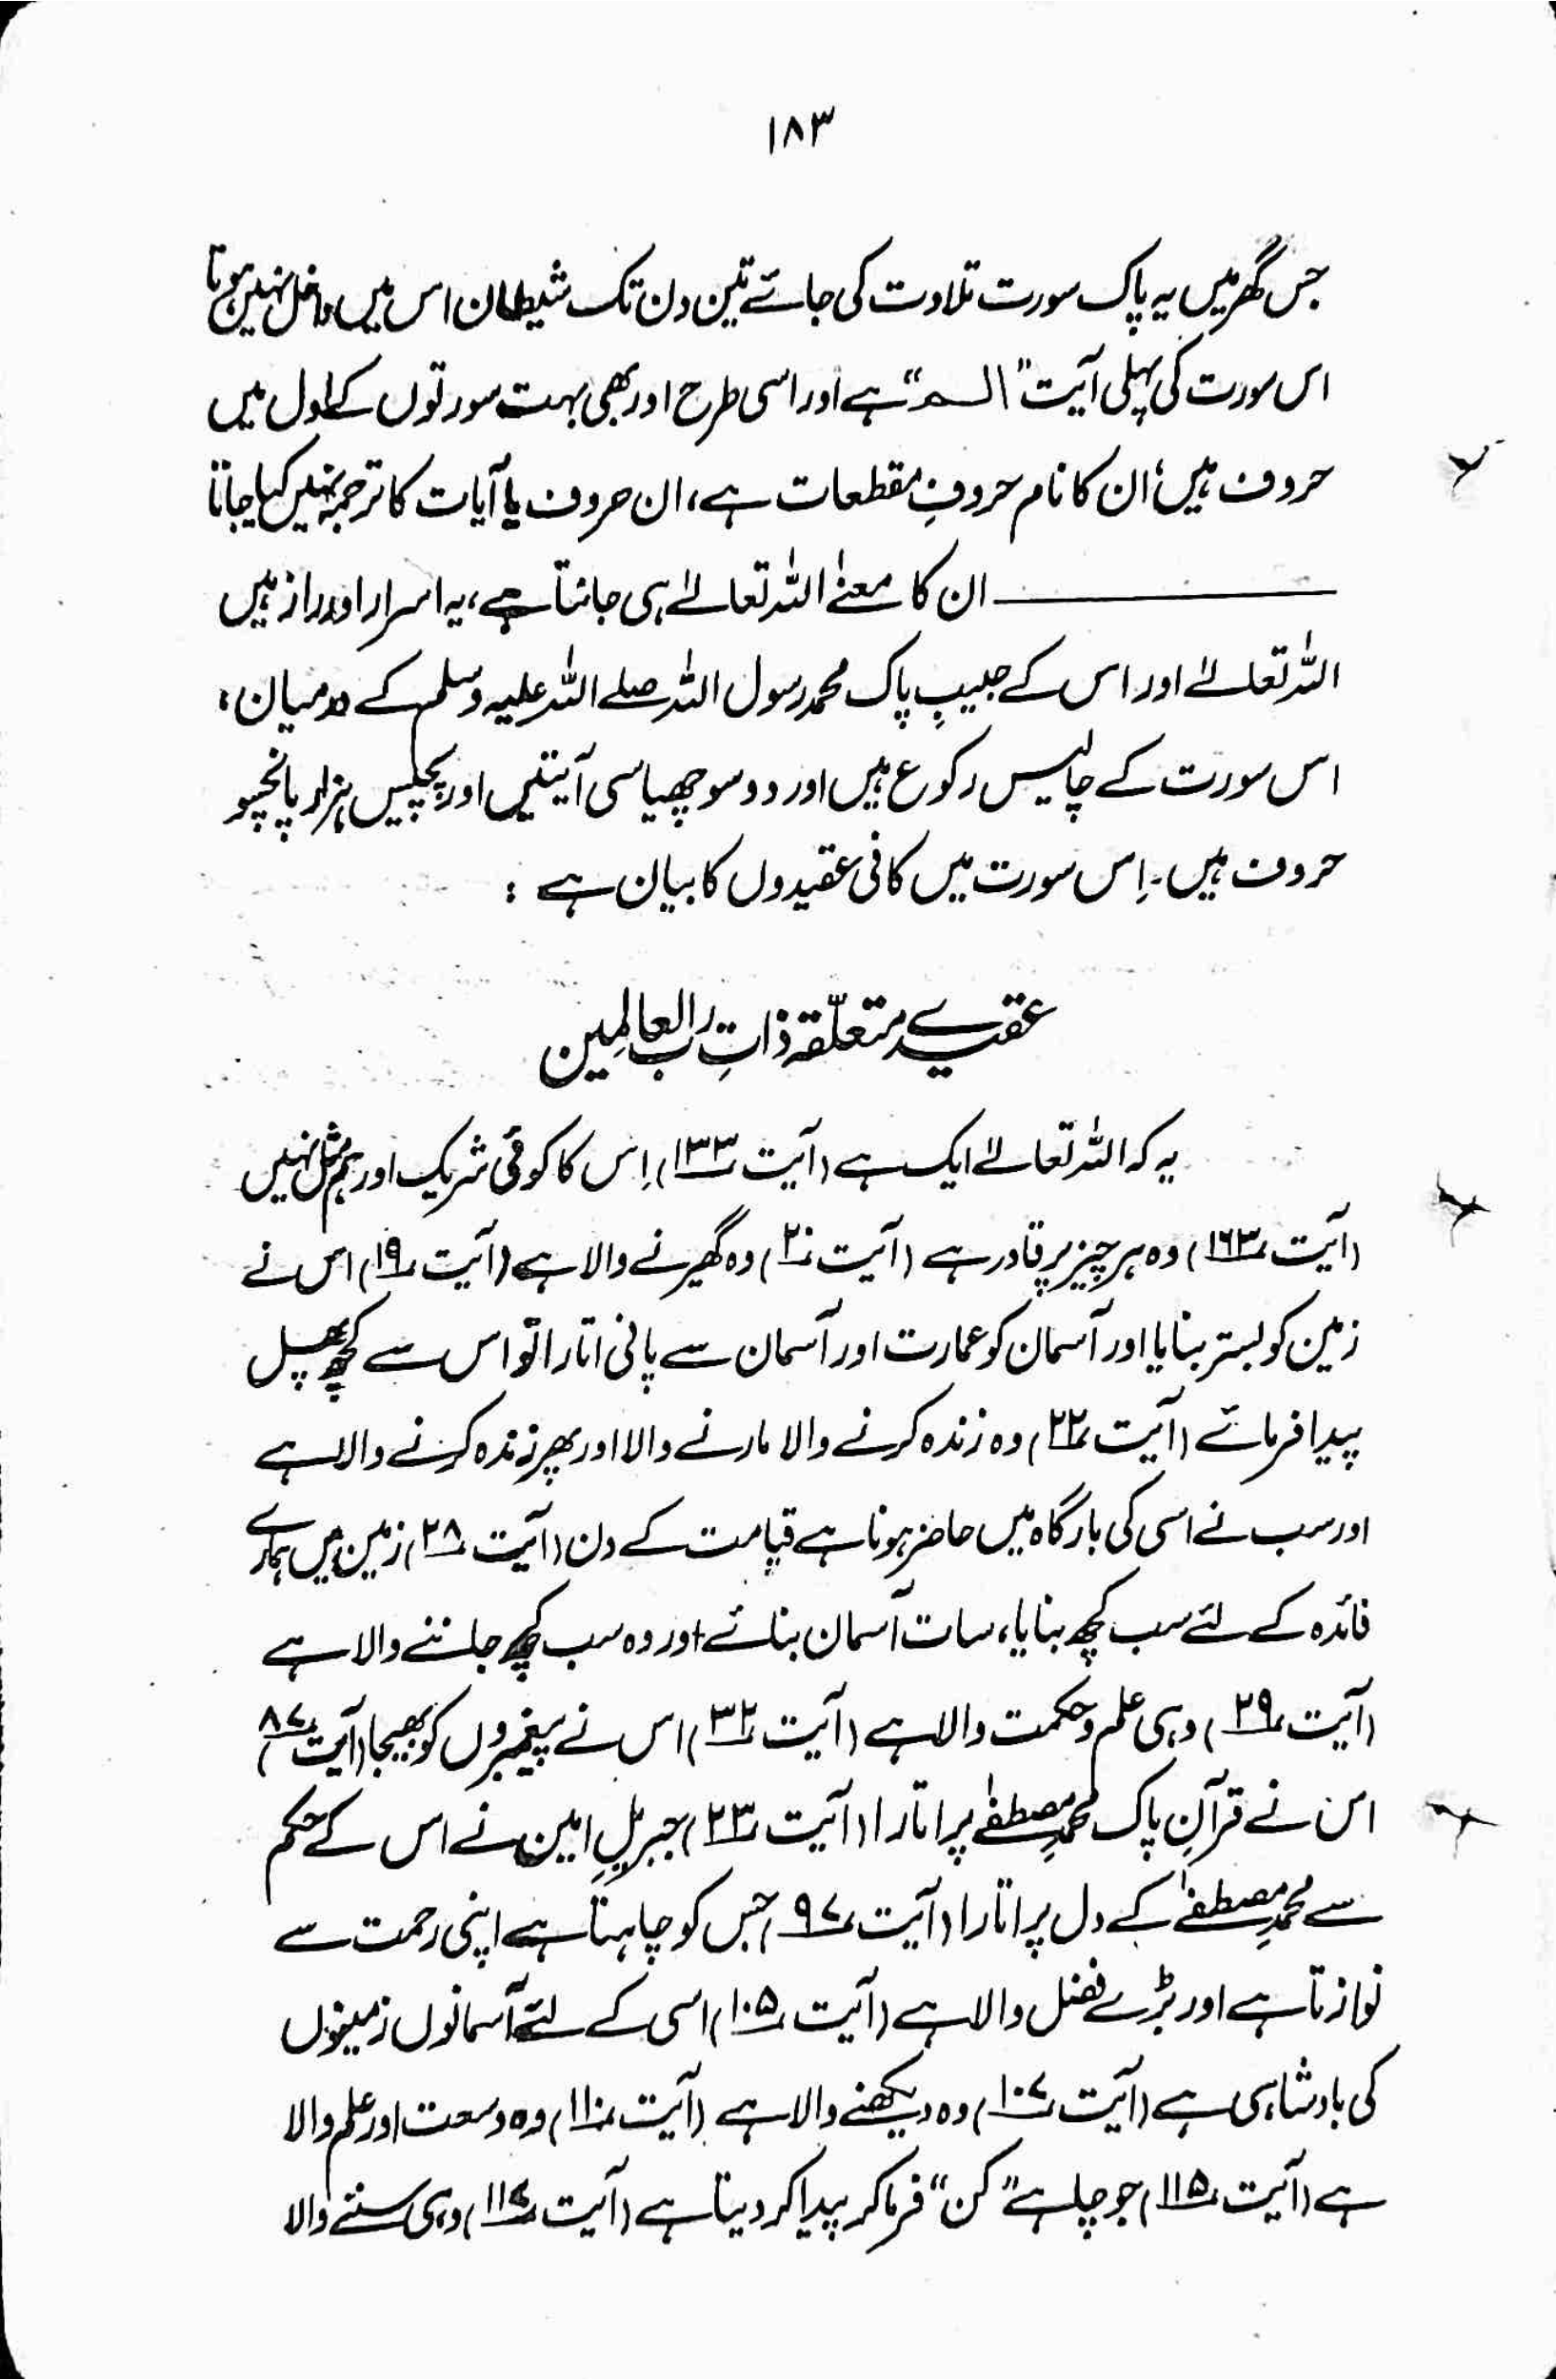 ۱۸۳
جس گھر میں یہ پاک سورت تلاوت کی جائے تین دن تک شیطان اس میں داخل نہیں ہوتا
اس سورت کی پہلی آیت "الٓـمّٓ" ہے اور اسی طرح اور بھی بہت سورتوں کے اول میں
حروف ہیں، ان کا نام حروفِ مقطعات ہے، ان حروف یا آیات کا ترجمہ نہیں کیا جاتا
ــــــــــــــــ ان کا معنےٰ اللہ تعالےٰ ہی جانتا ہے، یہ اسرار اور راز ہیں
اللہ تعالےٰ اور اس کے حبیبِ پاک محمد رسول اللہ صلے اللہ علیہ وسلم کے درمیان،
اس سورت کے چالیس رکوع ہیں اور دو سو چھیاسی آیتیں اور پچیس ہزار پانچسو
حروف ہیں۔ اِس سورت میں کافی عقیدوں کا بیان ہے :
عقیدے متعلّقہ ذاتِ رب العالمین
یہ کہ اللہ تعالےٰ ایک ہے (آیت ۱۳۳) اِس کا کوئی شریک اور ہم مثل نہیں
(آیت ۱۶۳) وہ ہر چیز پر قادر ہے (آیت ۲۰) وہ گھیرنے والا ہے (آیت ۱۹) اس نے
زمین کو بستر بنایا اور آسمان کو عمارت اور آسمان سے پانی اتارا تو اس سے کچھ پھل
پیدا فرمائے (آیت ۲۲) وہ زندہ کرنے والا مارنے والا اور پھر زندہ کرنے والا ہے
اور سب نے اسی کی بارگاہ میں حاضر ہونا ہے قیامت کے دن (آیت ۲۸) زمین میں ہمارے
فائدہ کے لئے سب کچھ بنایا، سات آسمان بنائے اور وہ سب کچھ جاننے والا ہے
(آیت ۲۹) وہی علم و حکمت والا ہے (آیت ۳۲) اس نے پیغمبروں کو بھیجا (آیت ۸۷)
اس نے قرآنِ پاک محمدِ مصطفےٰ پر اتارا (آیت ۲۳) جبریلِ امین نے اس کے حکم
سے محمدِ مصطفےٰ کے دل پر اتارا (آیت ۹۷) جس کو چاہتا ہے اپنی رحمت سے
نوازتا ہے اور بڑے فضل والا ہے (آیت ۱۰۵) اسی کے لئے آسمانوں زمینوں
کی بادشاہی ہے (آیت ۱۰۷) وہ دیکھنے والا ہے (آیت ۱۱۰) وہ وسعت اور علم والا
ہے (آیت ۱۱۵) جو چاہے "کن" فرما کر پیدا کر دیتا ہے (آیت ۱۱۷) وہی سننے والا